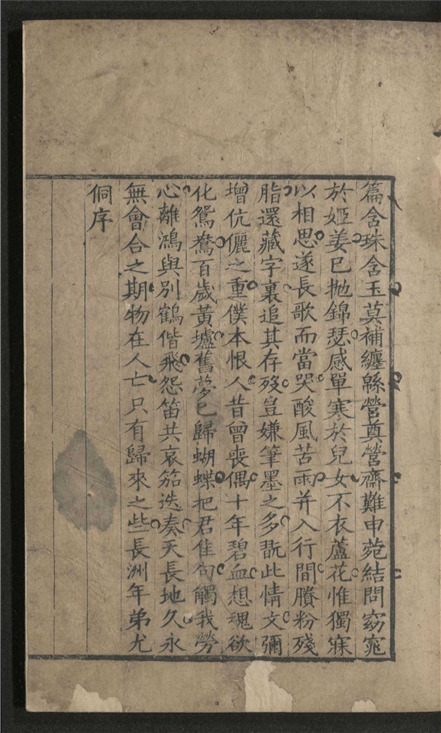 篇含珠含玉莫補纏緜營奠營齋難申菀結問窈窕
於姬姜已拋錦瑟感單寒於兒女不衣蘆花惟獨寐
以相思遂長歌而當哭酸風苦雨并入行間賸粉殘
脂還藏字裏追其存歿豈嫌筆墨之多翫此情文彌
增伉儷之重僕本恨人昔曾喪偶十年碧血想魂欲
化鴛鴦百歲黃壚舊夢已歸蝴蝶把君佳句觸我勞
心離鴻與別鶴偕飛怨笛共哀笳迭奏天長地久永
無會合之期物在人亡只有歸來之些長洲年弟尤
侗序